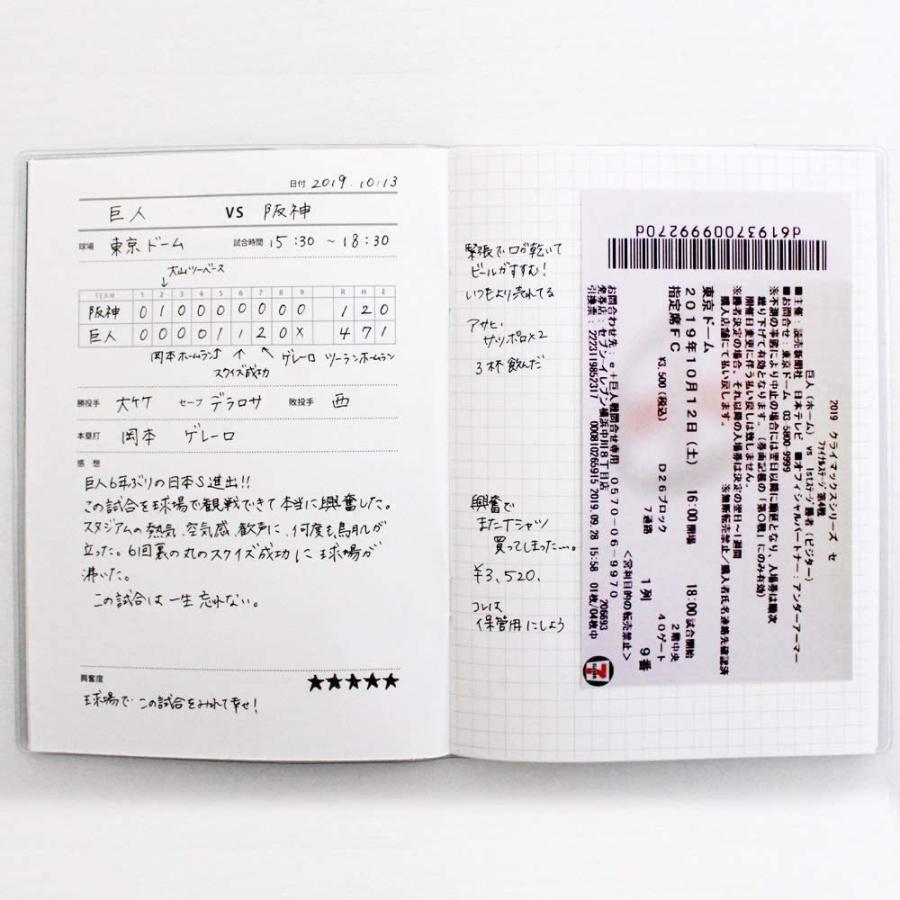 日付 2019.10/13
巨人 VS 阪神
球場 東京ドーム 試合時間 15:30 〜18:30
大山ツーベース
TEAM 1 2 3 4 5 6 7 8 9 R H E
阪神 0 1 0 0 0 0 0 0 0 1 2 0
巨人 0 0 0 0 1 1 2 0 × 4 7 1
岡本ホームラン↑ ゲレーロ ツーランホームラン
スクイズ成功
勝投手 大竹 セーブ デラロサ 敗投手 西
本塁打 岡本 ゲレーロ
感想
巨人6年ぶりの日本S進出!!
この試合を球場で観戦できて本当に興奮した。
スタジアムの熱気、空気感、歓声に、何度も鳥肌が
立った。6回裏の丸のスクイズ成功に球場が
沸いた。
この試合は一生忘れない。
興奮度 ★★★★★
球場でこの試合をみれて幸せ!
緊張で口が乾いて
ビールがすすむ!
いつもより売れてる
アサヒ
サッポロ×2
3杯飲んだ
興奮で
またTシャツ
買ってしまった…。
¥3,520.
コレは
保管用にしよう
d6193700999227​0d
2019 クライマックスシリーズ セ
ファイナルステージ 第4戦
巨人(ホーム) vs 1stステージ勝者(ビジター)
■主催:読売新聞社 日本テレビ ■オフィシャルパートナー:アンダーアーマー
■お問合せ:東京ドーム 03-5800-9999
※不測の事態により中止の場合には翌日以降に順延となり、入場券は順次
繰り下げて有効となります。(券面記載の「第〇戦」にのみ有効)
開催日変更に伴う払い戻しは致しません。
※勝者決定の場合、それ以降の入場券は決定の翌日〜1週間
購入店舗にて払い戻します。 ※無断転売禁止/購入者氏名連絡先確認済
東京ドーム
2019年10月12日(土) 16:00開場 18:00試合開始
指定席FC 2階中央
¥3,500(税込) D26ブロック 40ゲート
7通路 1列 9番
<営利目的の転売禁止>
お問合わせ先:e+巨人戦問合せ専用 0570-06-9970
発券店:セブン-イレブン横浜中川8丁目店 206693
引換票:2223119852317 000810265915 2019.09.28 15:58 01枚/04枚中